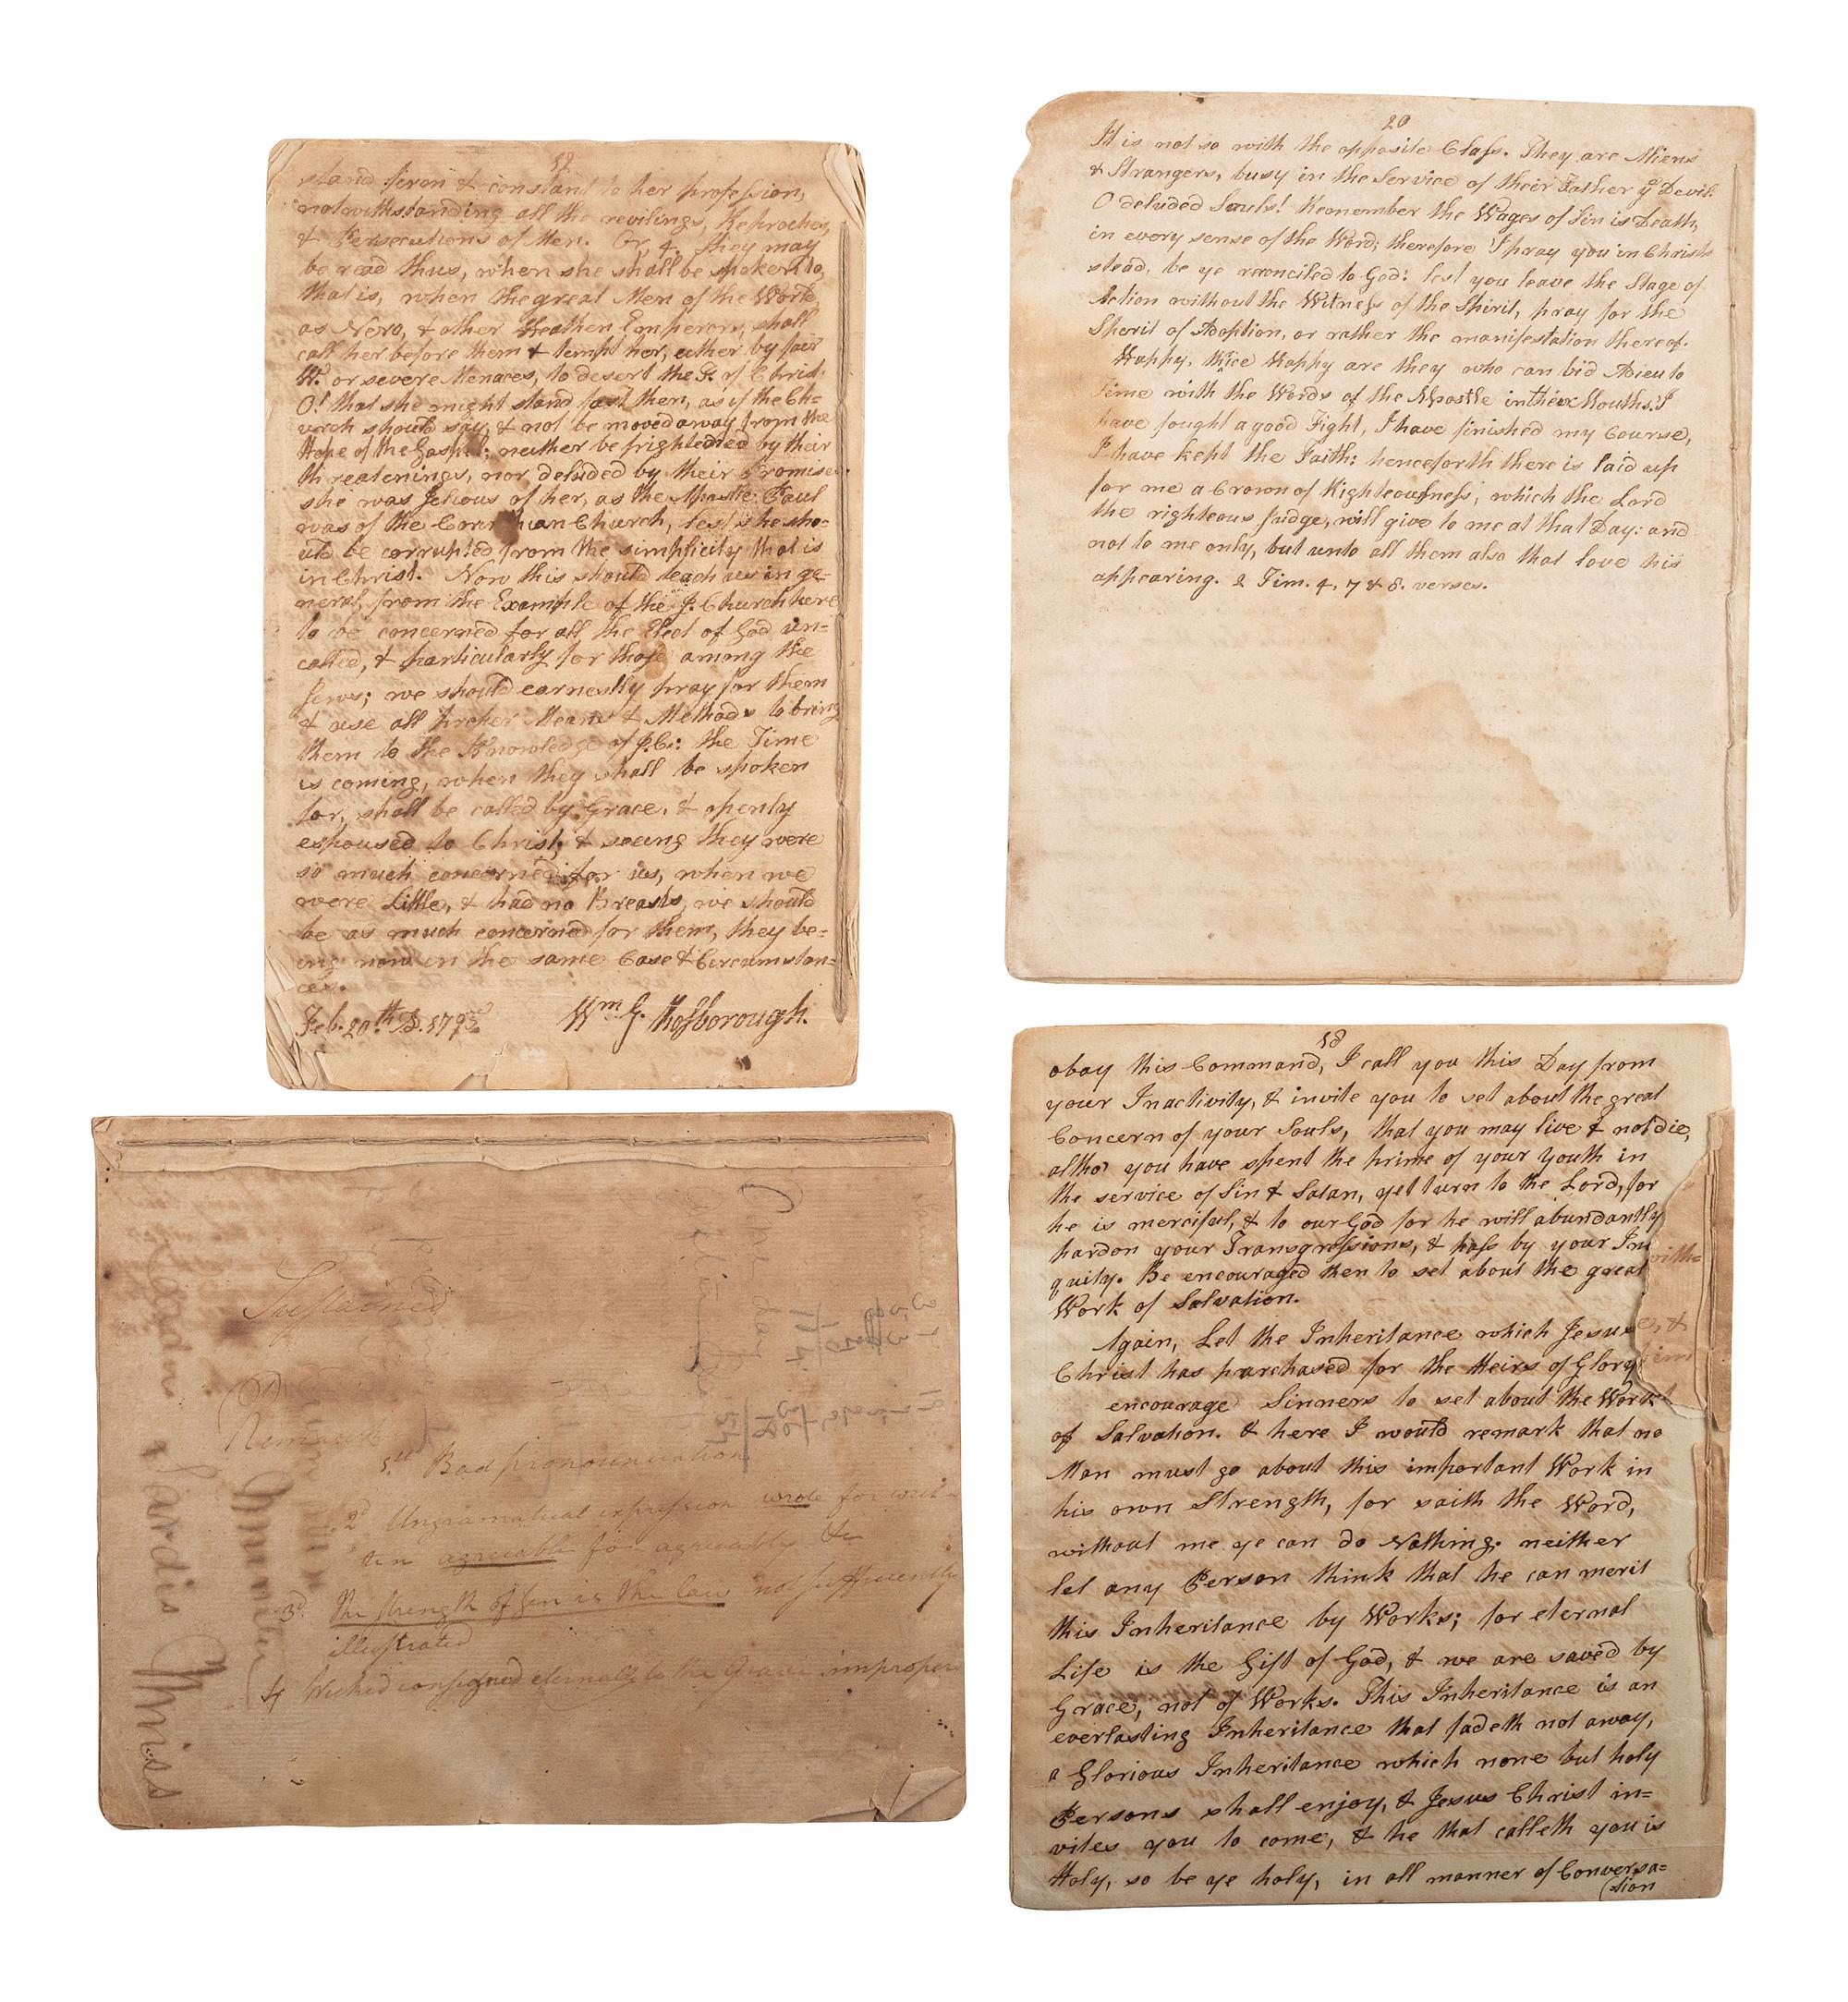 17
stand firm & constant to her profession,
notwithstanding all the revilings, Reproches,
& Persecutions of Men. Or, 4, they may
be read thus, when she shall be spoken to,
that is, when the great Men of the World,
as Nero, & other Heathen Emperors, shall
call her before them & tempt her, either by fair
W. or severe Menaces, to desert the G. of Christ.
O! that she might stand fast then, as if the Ch=
urch should say, & not be moved away from the
Hope of the Gospel; neither be frightened by their
threatenings, nor deluded by their Promises.
she was Jelious of her, as the Apostle Paul
was of the Corinthian Church, lest she sho=
uld be corrupted from the simplicity that is
in Christ. Now this should teach us in ge=
neral, from the Example of the J. Church here
to be concerned for all the Elect of God un=
called, & particularly for those among the
Jews; we should earnestly pray for them
& use all proper Means & Methods to bring
them to the Knowledge of J.C.: the Time
is coming, when they shall be spoken
for, shall be called by Grace, & openly
espoused to Christ; & seeing they were
so much concerned for us, when we
were Little, & had no Breasts, we should
be as much concerned for them, they be=
ing now in the same Case & Circumstan=
ces.
Feb. 20th D. 1793 Wm. G. Rosborough.
20
It is not so with the opposite Class. They are Aliens
& Strangers, busy in the Service of their Father ye Devil.
O deluded Souls! Remember the Wages of Sin is Death,
in every sense of the Word; therefore I pray you in Christs
stead, be ye reconciled to God: lest you leave the Stage of
Action without the Witness of the Spirit, pray for the
Spirit of Adoption, or rather the manifestation thereof.
Happy, thice Happy are they who can bid Adieu to
Time with the Words of the Apostle in their Mouths, I
have fought a good Fight, I have finished my Course,
I have kept the Faith: henceforth there is laid up
for me a Crown of Righteousness, which the Lord
the righteous Judge, will give to me at that Day: and
not to me only, but unto all them also that love his
appearing. 2 Tim. 4, 7 & 8. verses.
Sustained
Remarks
1st Bad pronounciation
2d Ungramatical expression wrote for writ-
ten agreeable for agreeably &c
3d. the strength of sin is the law not sufficiently
illustrated
4 Wicked consigned eternally to the Grave improper
18
obey this Command, I call you this Day from
your Inactivity, & invite you to set about the great
Concern of your Souls, that you may live & not die,
altho' you have spent the prime of your youth in
the service of Sin & Satan, yet turn to the Lord, for
he is merciful, & to our God for he will abundantly
pardon your Transgressions, & pass by your Ini
quity. Be encouraged then to set about the great
Work of Salvation.
Again, Let the Inheritance which Jesus
Christ has purchased for the Heirs of Glory
encourage Sinners to set about the Work
of Salvation. & here I would remark that no
Man must go about this important Work in
his own Strength, for saith the Word,
without me ye can do Nothing. neither
let any Person think that he can merit
this Inheritance by Works; for eternal
Life is the Gift of God, & we are saved by
Grace, not of Works. This Inheritance is an
everlasting Inheritance that fadeth not away,
a Glorious Inheritance which none but holy
Persons shall enjoy, & Jesus Christ in=
vites you to come, & he that calleth you is
Holy, so be ye holy, in all manner of Conversa=
(tion